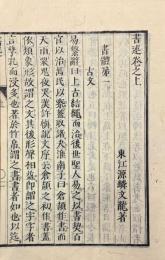 書述卷之上
東江源鱗文龍著
書體第一
古文
易繫辭曰上古結繩而治後世聖人易之以書契百
官以治萬民以察蓋取諸夬淮南子曰倉頡作書而
天雨粟鬼夜哭漢許愼說文序云倉頡之初作書蓋
依類象形故謂之文其後形聲相益即謂之字字者
言孳乳而浸多也著於竹帛謂之書書者如也以迄